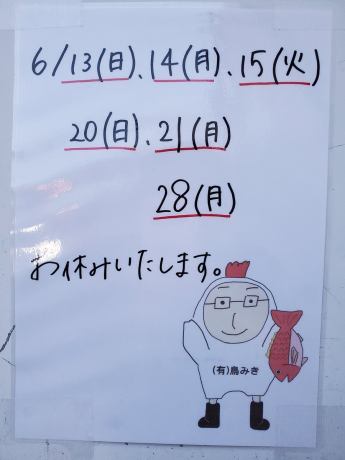 6/13(日)、14(月)、15(火)
20(日)、21(月)
28(月)
お休みいたします。
(有)鳥みき